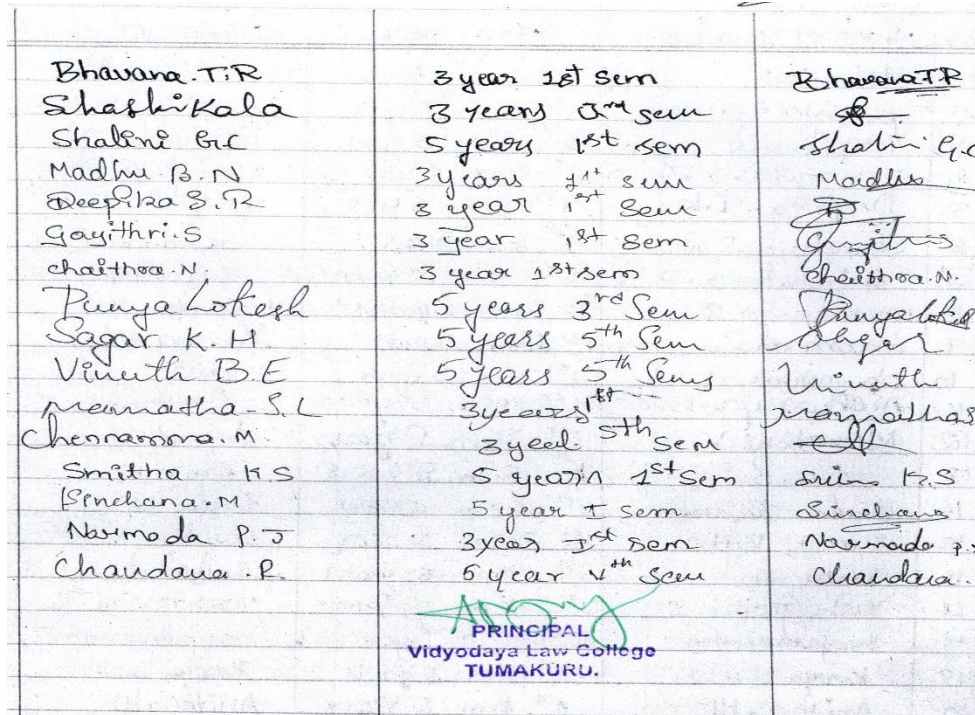 Bhavana.T.R 3 year 1st Sem Bhavana T.R
Shashikala 3 years 3rd Sem
Shalini G.C 5 years 1st Sem Shalini G.C
Madhu B.N 3 years 1st sem Madhu
Deepika S.R 3 year 1st Sem
Gayithri.S 3 year 1st Sem Gayithri S
Chaithra.N 3 year 1st sem Chaithra.N.
Punya Lokesh 5 years 3rd Sem Punya Lokesh
Sagar K. H 5 years 5th Sem Sagar
Vinuth B.E 5 years 5th Sem Vinuth
Mamatha.S.L 3 years 1st Mamatha S
Chennamma.M 3 year 5th Sem
Smitha K.S 5 years 1st Sem K.S
Sinchana.M 5 year I sem Sinchana
Narmada P.J 3 year Ist Sem Narmada P.
Chandana.R. 5 year Vth Sem Chandana.
PRINCIPAL
Vidyodaya Law College
TUMAKURU.